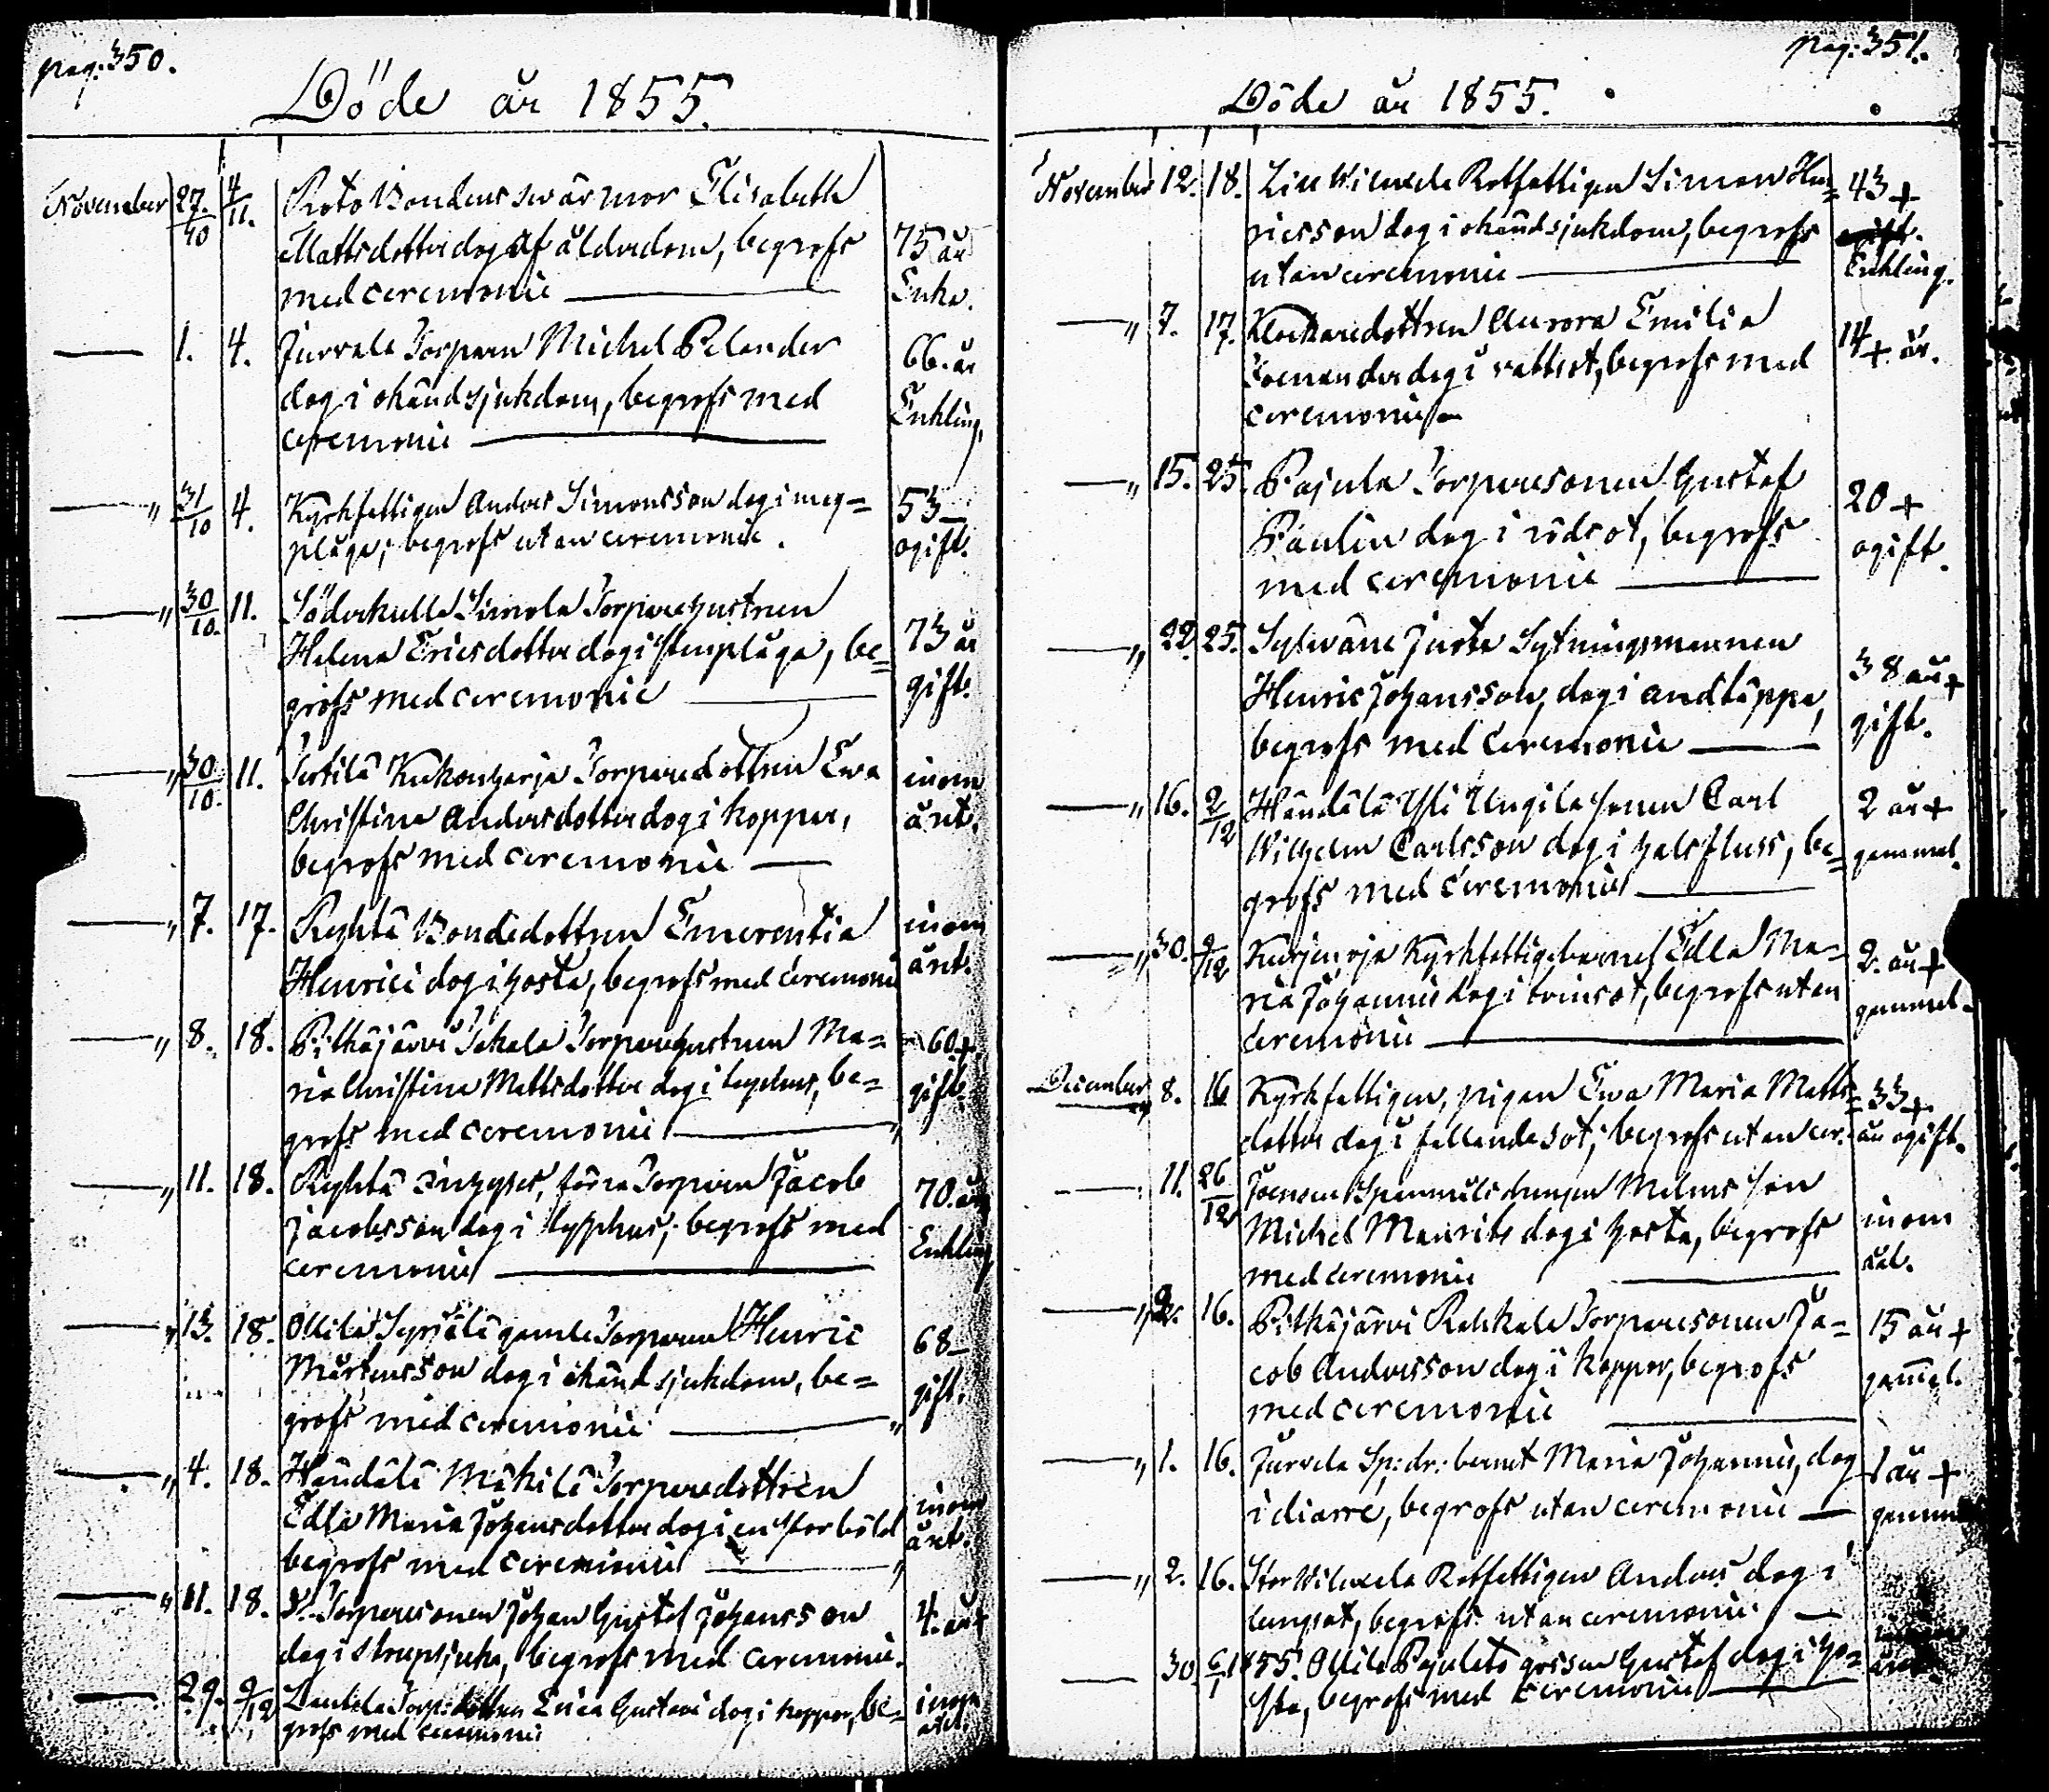 pag: 350.
Döde år 1855.
November 27./10 4/11. Roto Bondens svärmor Elisabeth
Mattsdotter dog af ålderdom, begrofs 75 år
med ceremonie Enka.
1. 4. Jurvala Torparen Michel Pelander 66. år
dog i okänd sjukdom, begrofs med Enkling.
ceremonie
" 31/10 4. Kyrkfattigen Anders Simonsson dog i mag= 53
plåga; begrofs utan ceremonie. ogift.
" 30/10. 11. Söderkulla Simola Torparehustrun
Helena Ericsdotter dog i stenplåga, be= 73 år
grofs med ceremonie gift.
" 30/10. 11. Torparedottren Ewa inom
Christina Andersdotter dog i koppor, året.
begrofs med ceremonie
" 7. 17. Ryhtä Bondedottren Emerentia inom
Henrici dog i hosta, begrofs med ceremonie året.
" 8. 18. Pitkäjärvi Torparehustrun Ma= 60 +
ria Christina Mattsdotter dog i typhus, be= gift.
grofs med ceremonie "
" 11. 18. Ryhtä Inhyses, förra Torparen Jacob 70. år
Jacobsson dog i typhus; begrofs med Enkling
ceremonie
" 13. 18. Ollila Syrjälä gamle Torparen Henric 68
Mårtensson dog i okänd sjukdom, be= gift.
grofs med ceremonie "
" 4. 18. Händälä Mäkilä Torparedottren
Edla Maria Johansdotter dog i en stor böld inom
begrofs med ceremonie " året.
" 11. 18. Torparesonen Johan Gustaf Johansson 4. år +
dog i strupsjuka, begrofs med ceremonie.
29. 9/12 Torp: dottren Erica Gustava dog i koppor, be= inom
grofs med ceremonie året.
pag: 351.
Döde år 1855.
November 12. 18. Rotfattigen Simon Hen= 43 +
ricsson dog i okänd sjukdom, begrofs gift.
utan ceremonie Enkling.
" 7. 17. Klockaredottren Aurora Emilia 14 + år.
dog i vattsot, begrofs med
ceremonie
" 15. 25. Pajula Torparesonen Gustaf 20 +
Paulin dog i rödsot, begrofs ogift.
med ceremonie
" 22. 25. Juska Sytningsmannen
Henric Johansson, dog i andtäppa, 38 år +
begrofs med ceremonie gift.
" 16. 2/12 Händälä Yli Ungila sonen Carl 2 år +
Wilhelm Carlsson dog i halsfluss, be= gammal.
grofs med ceremonie
" 30. 9/12 Kyrkfattigebarnet Edla Ma= 2. år +
ria Johannis dog i tvinsot, begrofs utan gammal.
ceremonie
December " 8. 16. Kyrkfattigen, pigan Ewa Maria Matts= 33 +
dotter dog i fallandesot; begrofs utan cer. år ogift.
11. 26/12 Spannmåls drängen Malms son
Michel Maurits dog i hosta, begrofs inom
med ceremonie året.
" 2. 16. Pitkäjärvi Torparesonen Ja= 15 år +
cob Andersson dog i koppor, begrofs gammal.
med ceremonie
" 1. 16. Jurvala Sp: dr: barnet Maria Johannis, dog 1 år +
i diarré, begrofs utan ceremonie gammal
" 2. 16. Stor Wilunda Rotfattigen Anders dog i
lungsot, begrofs utan ceremonie.
30. 6/1 1855. Ollila gossen Gustaf dog i ho=
sta, begrofs med ceremonie året.